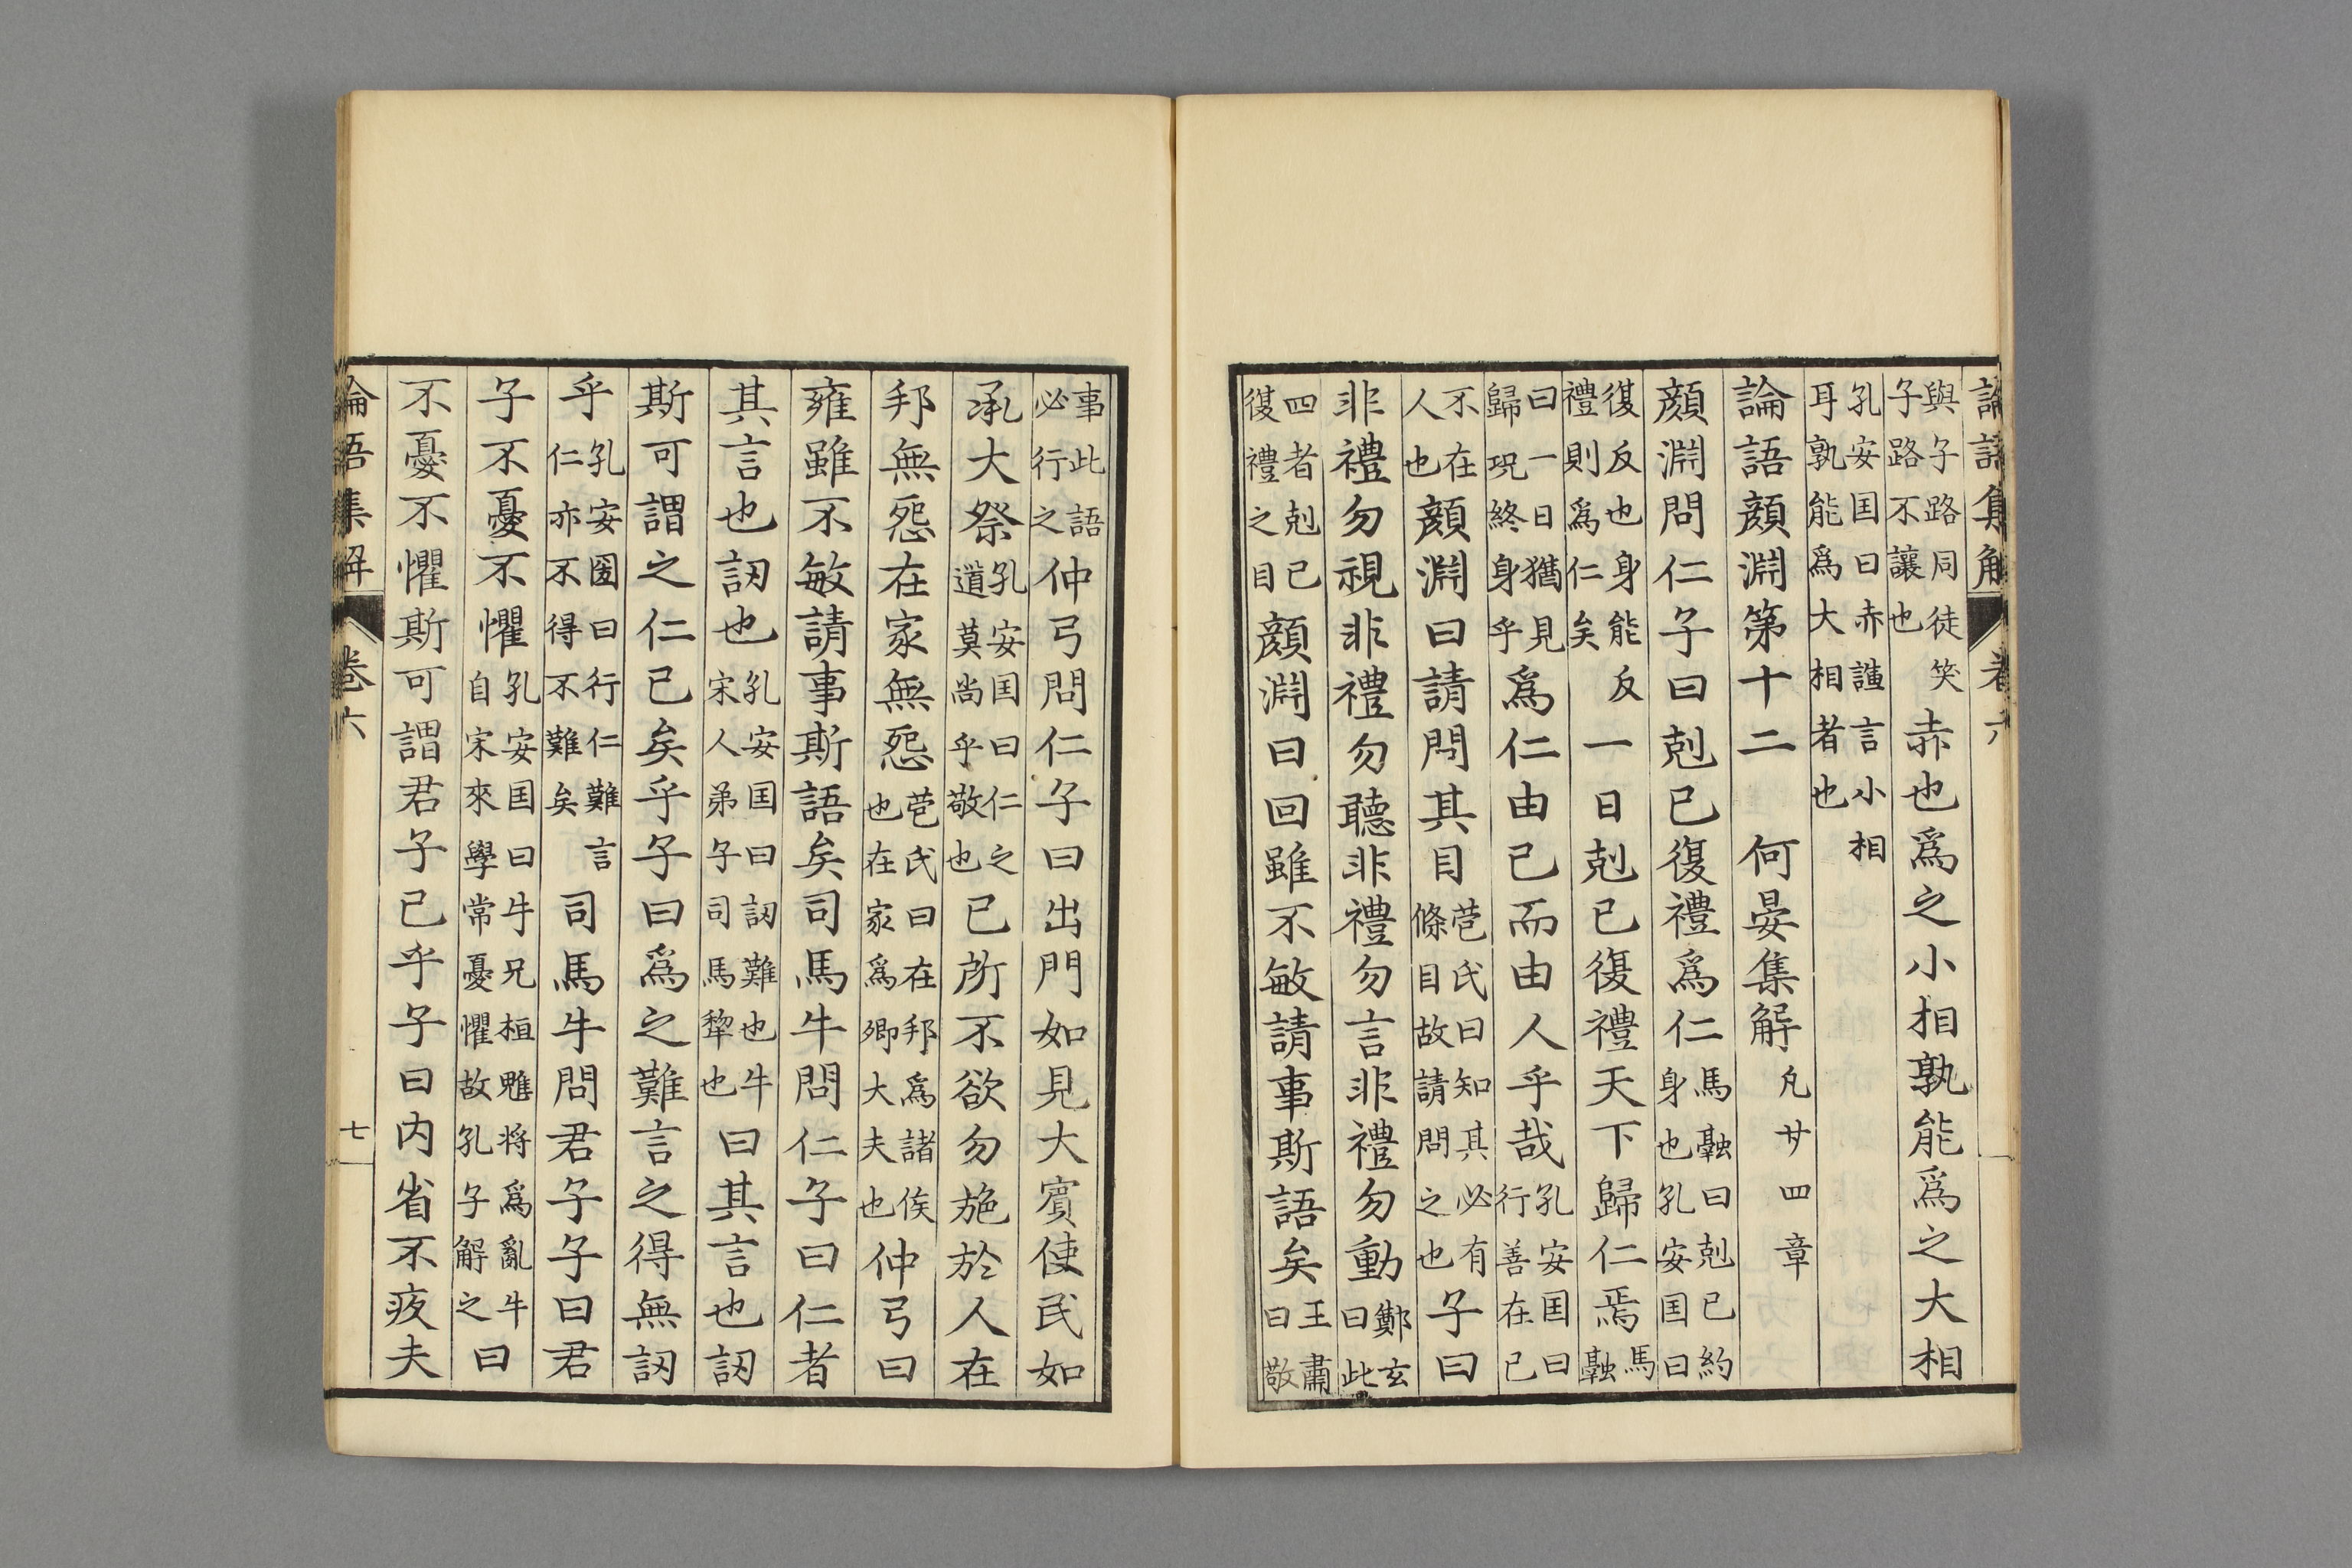 論語集解 卷六
與子路同徒笑子路不讓也赤也爲之小相孰能爲之大相
孔安囯曰赤謙言小相耳孰能爲大相者也
論語顔淵第十二 何晏集解 凡廿四章
顔淵問仁子曰剋己復禮爲仁馬融曰剋己約身也孔安囯曰
復反也身能反禮則爲仁矣一日剋己復禮天下歸仁焉馬融
曰一日猶見歸況終身乎爲仁由己而由人乎哉孔安囯曰行善在己
不在人也顔淵曰請問其目苞氏曰知其必有條目故請問之也子曰
非禮勿視非禮勿聽非禮勿言非禮勿動鄭玄曰此
四者剋己復禮之目顔淵曰回雖不敏請事斯語矣王肅曰敬
事此語必行之仲弓問仁子曰出門如見大賓使民如
承大祭孔安囯曰仁之道莫尚乎敬也己所不欲勿施於人在
邦無怨在家無怨苞氏曰在邦爲諸侯也在家爲卿大夫也仲弓曰
雍雖不敏請事斯語矣司馬牛問仁子曰仁者
其言也訒也孔安囯曰訒難也牛宋人弟子司馬犂也曰其言也訒
斯可謂之仁已矣乎子曰爲之難言之得無訒
乎孔安國曰行仁難言仁亦不得不難矣司馬牛問君子子曰君
子不憂不懼孔安囯曰牛兄桓魋将爲亂牛自宋來學常憂懼故孔子解之曰
不憂不懼斯可謂君子已乎子曰内省不疚夫
論語集解 卷六 七